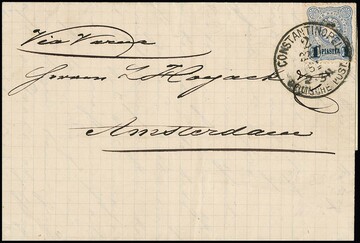 Via Varna
Herren L Hoyack
Amsterdam
1 PIASTER
CONSTANTINOPEL
DEUTSCHE POST.